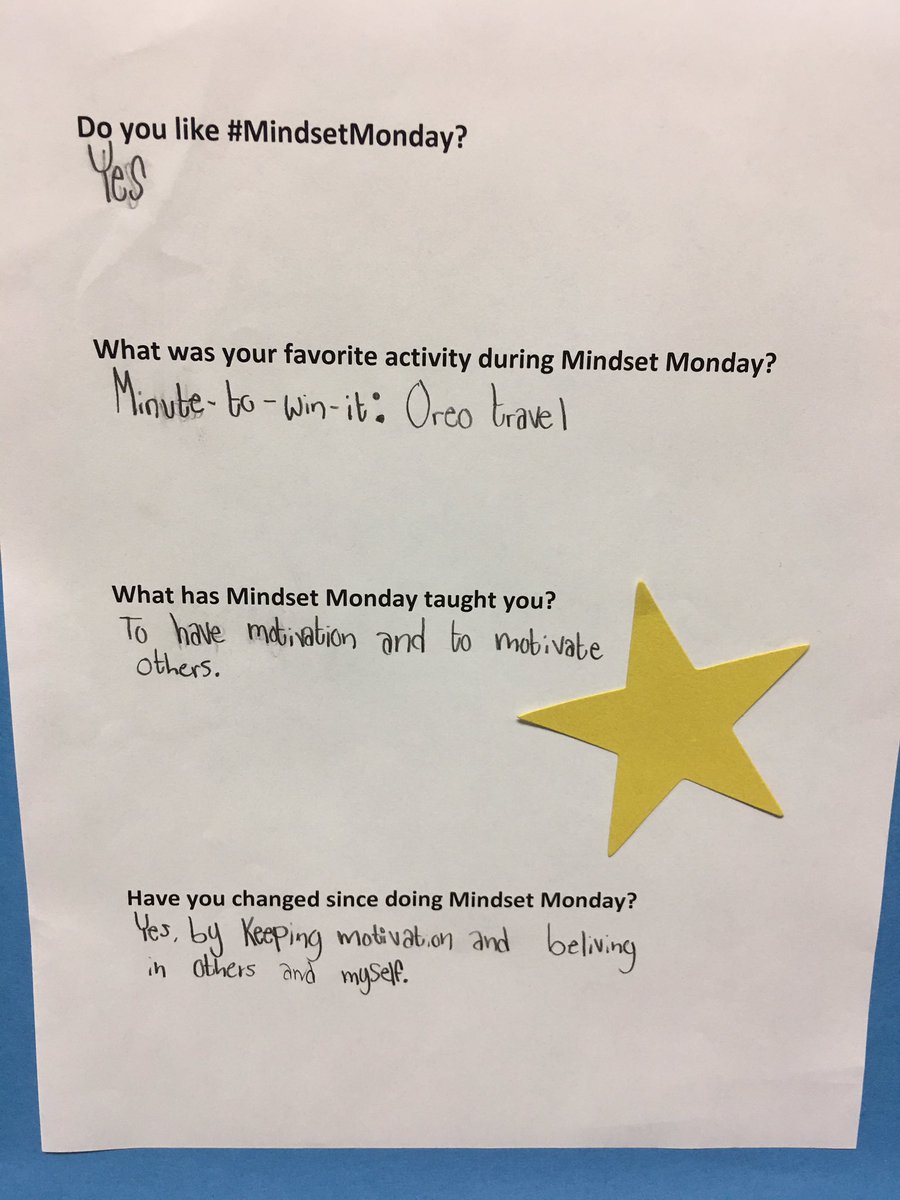 Do you like #MindsetMonday?
Yes
What was your favorite activity during Mindset Monday?
Minute-to-win-it: Oreo travel
What has Mindset Monday taught you?
To have motivation and to motivate
others.
Have you changed since doing Mindset Monday?
Yes, by Keeping motivation and beliving
in others and myself.